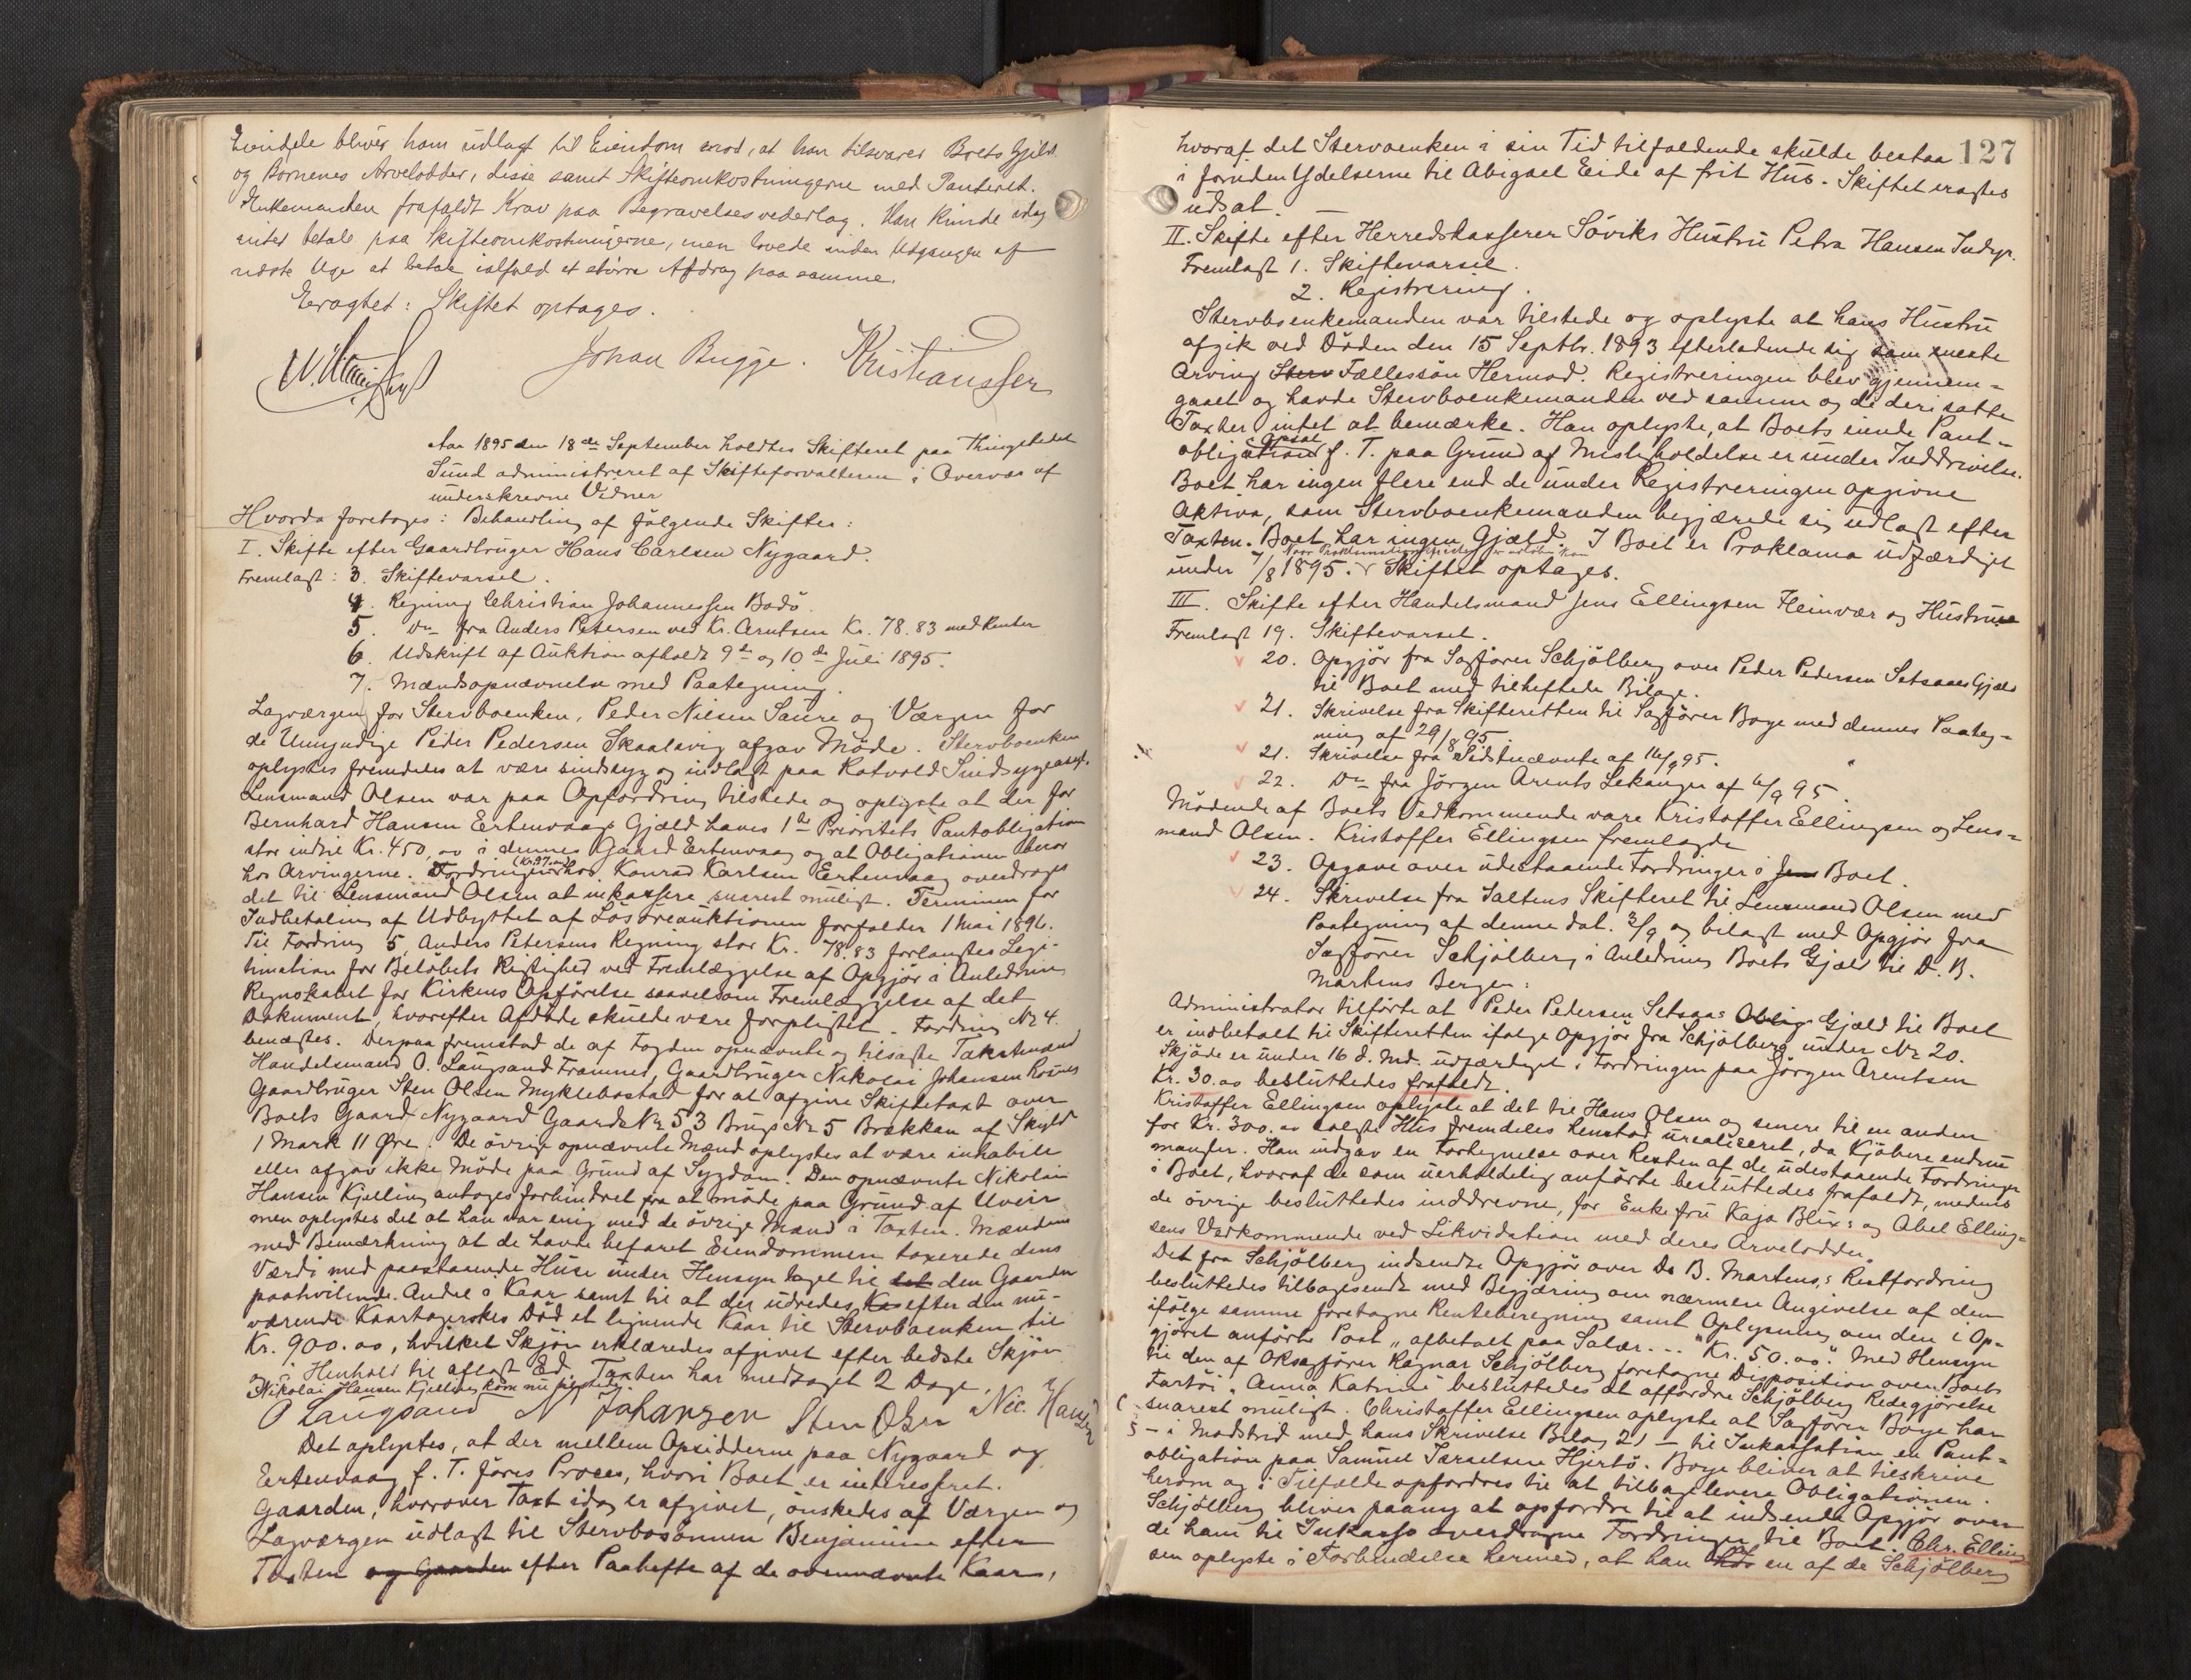 Eiendele bliver ham udlagt til Eiendom mod, at han tilsvarer Boets Gjeld
og Børnenes Arvelodder, disse samt Skifteomkostningerne med Panteret.
Enkemanden frafaldt Krav paa Begravelsesvederlag. Han kunde idag
intet betale paa Skifteomkostningerne, men lovede inden Udgangen af
næste Uge at betale ialfald et større Afdrag paa samme.
Eragtet: Skiftet optages.
Johan Bugge. Kristianssen
Aar 1895 den 18de September holdtes Skifteret paa Thingstedet
Sund administreret af Skifteforvalteren i Overvær af
underskrevne Vidner
Hvorda foretages: Behandling af følgende Skifter:
I. Skifte efter Gaardbruger Hans Carlsen Nygaard.
Fremlagt: 3. Skiftevarsel.
4. Regning Christian Johannessen Bodø.
5. Do fra Anders Petersen ved Kr. Arntsen Kr. 78.83 med Renter
6. Udskrift af Auktion afholdt 9de og 10de Juli 1895.
7. Mandsopnævnelse med Paategning.
Lagværgen for Stervboenken, Peder Nilsen Saure og Værgen for
de Umyndige Peder Pedersen Skaalsvig afgav Møde. Stervboenken
oplystes fremdeles at være sindssyg og indlagt paa Rotvold Sindsygeasyl.
Lensmand Olsen var paa Opfordring tilstede og oplyste at der for
Bernhard Hansen Ertenvaags Gjæld haves 1ste Prioritets Pantobligation
stor indtil Kr. 450,00 i dennes Gaard Ertenvaag og at Obligationen beror
hos Arvingerne. Fordringen hos Konrad Karlsen Ertenvaag overdroges
det til Lensmand Olsen at inkassere snarest muligt. Terminen for
Indbetaling af Udbyttet af Løsøreauktionen forfalder 1 Mai 1896.
Til Fordring 5, Anders Petersens Regning stor Kr. 78.83 forlangtes Legi-
timation for Beløbets Rigtighed ved Fremlæggelse af Opgjør i Anledning
Regnskabet for Kirkens Opførelse saavelsom Fremlæggelse af det
Dokument, hvorefter Afdøde skulde være forpligtet. Fordring No 4.
benægtes. Derpaa fremstod de af Fogden opnævnte og tilsagte Takstmænd
Handelsmand O. Langsand Framnes, Gaardbruger Nikolai Johansen Rosnes
Gaardbruger Sten Olsen Myklebostad for at afgive Skiftetaxt over
Boets Gaard Nygaard Gaards No 53 Brugs No 5 Brækkan af Skyld
1 Mark 11 Øre. De øvrige opnævnte Mænd oplystes at være inhabile
eller afgav ikke Møde paa Grund af Sygdom. Den opnævnte Nikolai
Hansen Kjelling antages forhindret fra at møde paa Grund af Uveir
men oplystes det at han var enig med de øvrige Mænd i Taxten. Mændene
med Bemærkning at de havde befaret Eiendommen taxerede dens
Værdi med paastaaende Huse under Hensyn taget til det den Gaarden
paahvilende Andel i Kaar samt til at der udredes Ka efter den nu-
værende Kaartagerskes Død et lignende Kaar til Stervboenken til
Kr. 900.00, hvilket Skjøn erklæredes afgivet efter bedste Skjøn
og i Henhold til aflagt Ed. Taxten har medtaget 2 Dage.
Nikolai Hansen Kjelling kom nu tilstede.
O Langsand N Johansen Sten Olsen Nic. Hansen
Det oplystes, at der mellem Opsidderne paa Nygaard og
Ertenvaag f. T. føres Proces, hvori Boet er interesseret.
Gaarden, hvorover Taxt idag er afgivet, ønskedes af Værgen og
Lagværgen udlagt til Stervbosønnen Benjamin efter
Taxten og Gaarden efter Paahefte af de ovennævnte Kaar,
127
hvoraf det Stervoenken i sin Tid tilfaldende skulde bestaa
i foruden Ydelserne til Abigael Eide af frit Hus. Skiftet eragtes
udsat.
II. Skifte efter Herredskasserer Søviks Hustru Petra Hansen Indyr.
Fremlagt 1. Skiftevarsel.
2. Registrering.
Stervboenkemanden var tilstede og oplyste at hans Hustru
afgik ved Døden den 15 Septbr. 1893 efterladende sig som eneste
Arving Sterv Fællessøn Hermod. Registreringen blev gjennem-
gaaet og havde Stervboenkemanden ved samme og de deri satte
Taxter intet at bemærke. Han oplyste, at Boets eiende Pant-
obligation f. T. paa Grund af Misligholdelse er under Inddrivelse.
Boet har ingen flere end de under Registreringen opgivne
Aktiva, som Stervboenkemanden begjærede sig udlagt efter
Taxten. Boet har ingen Gjæld. I Boet er Proklama udfærdiget
under 7/8 1895. Skiftet optages.
III. Skifte efter Handelsmand Jens Ellingsen Fleinvær og Hustru
Fremlagt 19. Skiftevarsel.
20. Opgjør fra Sagfører Schjølberg over Peder Pedersen Setsaaes Gjæld
til Boet med tilheftede Bilage.
21. Skrivelse fra Skifteretten til Sagfører Boye med dennes Paateg-
ning af 29/8 95.
21. Skrivelse fra Sidstnævnte af 16/9 95.
22. Do fra Jørgen Arents Lekanger af 6/9 95.
Mødende af Boets Vedkommende vare Kristoffer Ellingsen og Lens-
mand Olsen. Kristoffer Ellingsen fremlagde
23. Opgave over udestaaende Fordringer i Jens Boet.
24. Skrivelse fra Saltens Skifteret til Lensmand Olsen med
Paategning af denne dat. 3/9 og bilagt med Opgjør fra
Sagfører Schjølberg i Anledning Boets Gjæld til D. B.
Martens Bergen:
Administrator tilførte at Peder Pedersen Setsaas Oblig Gjæld til Boet
er indbetalt til Skifteretten ifølge Opgjør fra Schjølberg under No 20.
Skjøde er under 16 d. Md. udfærdiget. Fordringen paa Jørgen Arentsen
Kr. 30.00 besluttedes frafaldt.
Kristoffer Ellingsen oplyste at det til Hans Olsen og senere til en anden
for Kr. 300.00 solgte Hus fremdeles henstod urealiseret, da Kjøbere endnu
mangler. Han indgav en Fortegnelse over Resten af de udestaaende Fordringer
i Boet, hvoraf de som uerholdelig anførte besluttedes frafaldt, medens
de øvrige besluttedes inddrevne, for Enkefru Kaja Blix's og Abel Elling-
sens Vedkommende ved Likvidation med deres Arvelodder.
Det fra Schjølberg indsendte Opgjør over D. B. Martens's Restfordring
besluttedes tilbagesendt med Begjæring om nærmere Angivelse af den
ifølge samme foretagne Renteberegning samt Oplysning om den i Op-
gjøret anførte Post „afbetalt paa Salær... Kr. 50.00". Med Hensyn
til den af ORsagfører Ragnar Schjølberg foretagne Disposition over Boets
Fartøi „Anna Katrine" besluttedes at affordre Schjølberg Redegjørelse
snarest muligt. Christoffer Ellingsen oplyste at Sagfører Boye har
- i Modstrid med hans Skrivelse Bilag 21 - til Inkassation en Pant-
obligation paa Samuel Israelsen Hjertø. Boye bliver at tilskrive
herom og i Tilfælde opfordres til at tilbagelevere Obligationen.
Schjølberg bliver paany at opfordre til at indsende Opgjør over
de ham til Inkasso overdragne Fordringer til Boet. Chr. Elling-
sen oplyste i Forbindelse hermed, at han hos en af de Schjølberg